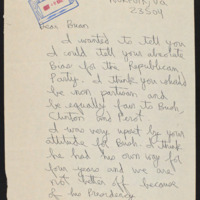 Norfolk, Va
23504
Dear Brian
I wanted to tell you
I could tell your absolute
Bias for the Republican
Party. I think you should
be non partisan and
be equally fair to Bush,
Clinton and Perot.
I was very upset by your
attitude for Bush. I think
he had his own way for
four years and we are
not better off because
of his